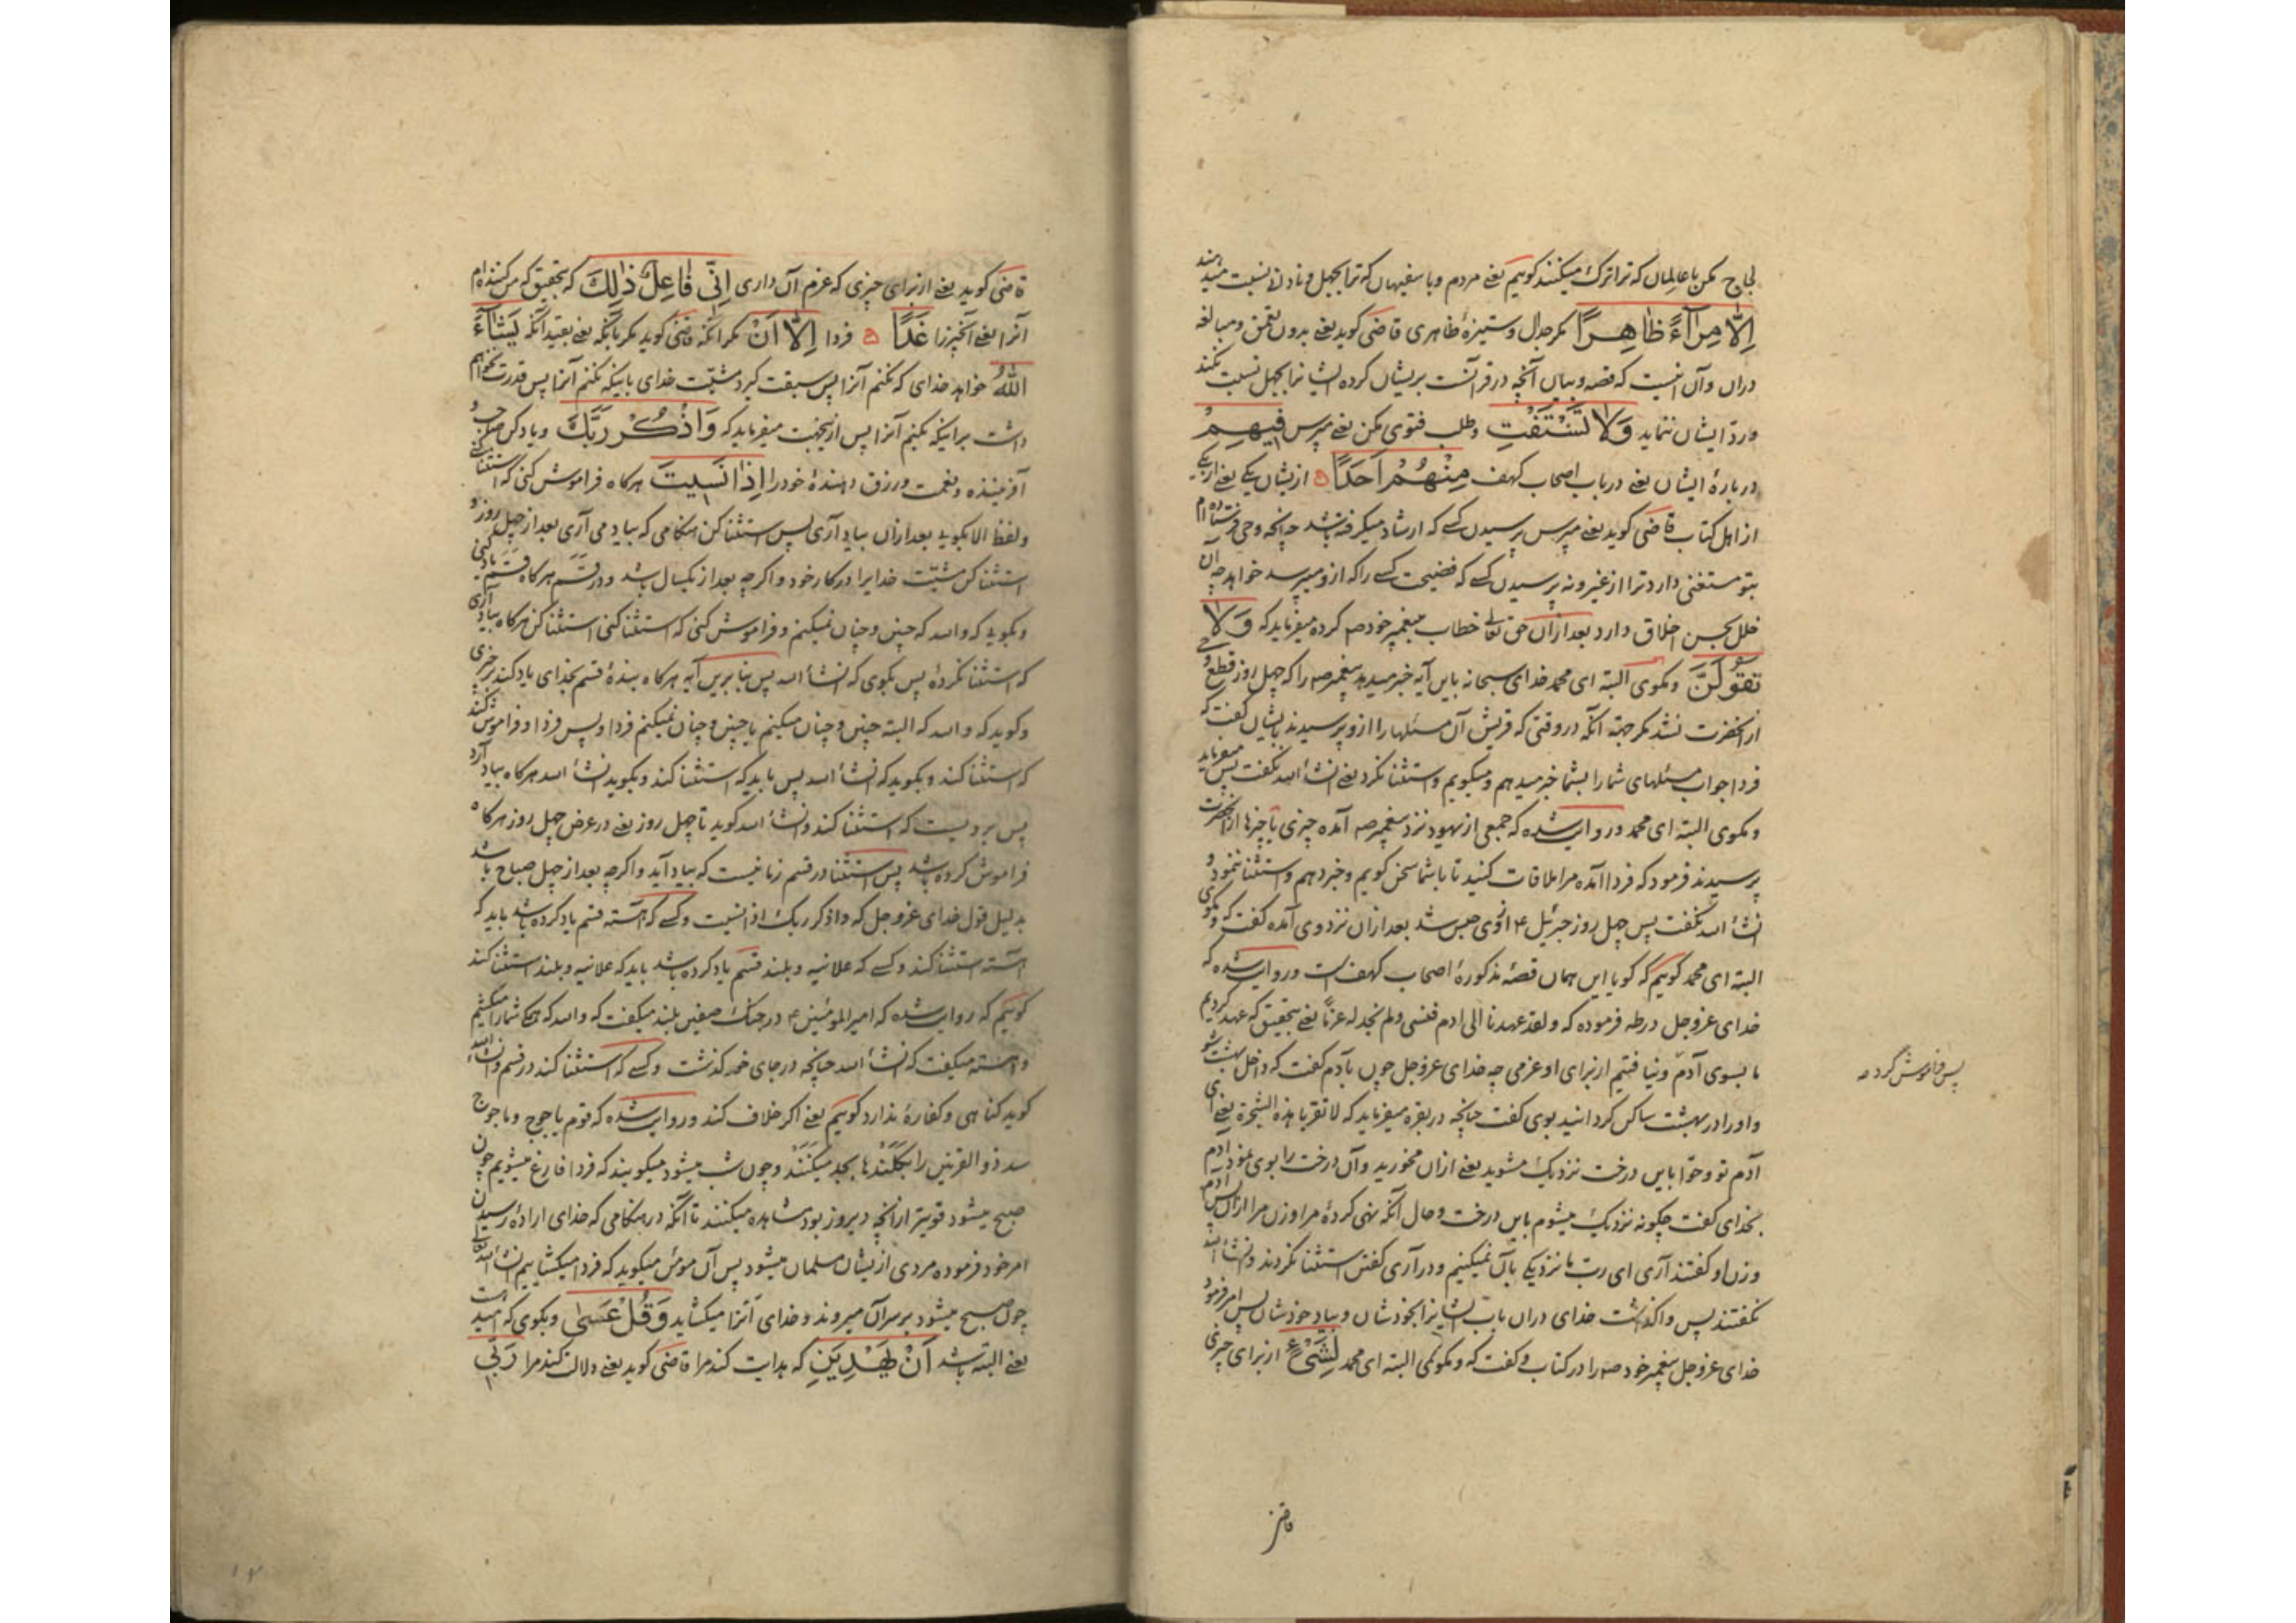 لجاج مکن با عالمان که ترا ترک میکنند کوئیم یعنی مردم و با سفیهان که ترا بجهل و نادانی نسبت میدهند
اِلّا مِرَآءً ظَاهِرًا مکر جدال و ستیزهٔ ظاهری قاضی کوید یعنی بدون تعمق و مبالغه
دران وآن اینست که قصه و بیان آنچه در قرآنست بریشان کرده ایشانرا بجهل نسبت نکند
و ردّ ایشان ننماید وَلَا تَسْتَفْتِ و طلب فتوی مکن یعنی مپرس فِیهِمْ
در بارهٔ ایشان یعنی در باب اصحاب کهف مِنْهُمْ اَحَدًا از یشان یکی یعنی از یکی
از اهل کتاب قاضی کوید یعنی مپرس پرسیدن کسی که ارشاد میکرفته باشد چه آنچه وحی فرستاده ام
بتو مستغنی دارد ترا از غیر و نه پرسیدن کسی که فضیحت کسی را که ازو میپرسد خواهد چه آن
خلل بحسن اخلاق دارد بعد ازان حق تعالی خطاب به پیغمبر خود صم کرده میفرماید که وَلَا
تَقُولَنَّ و مکوی البته ای محمد خدای سبحانه باین آیه خبر میدهد پیغمبر صم را که چهل روز قطع وحی
از آنحضرت نشد مکر جهته آنکه در وقتی که قریش آن مسئلها را ازو پرسیدند بایشان کفت که
فردا جواب مسئلهای شما را بشما خبر میدهم و میکویم و استثنا نکرد یعنی انشأ الله نکفت پس میفرماید
و مکوی البته ای محمد و روایت شده که جمعی از یهود نزد پیغمبر صم آمده چیزی یا چیزها از آنحضرت
پرسیدند فرمود که فردا آمده مرا ملاقات کنید تا با شما سخن کویم و خبر دهم و استثنا ننمود و
انشأ الله نکفت پس چهل روز جبرئیل ع از وی حبس شد بعد ازان نزد وی آمده کفت که و مکوی
البته ای محمد کوئیم که کویا این همان قصهٔ مذکورهٔ اصحاب کهف است و روایت شده که
خدای عزوجل در طه فرموده که ولقد عهدنا الی ادم فنسی ولم نجد له عزمًا یعنی بتحقیق که عهد کردیم
ما بسوی آدم و نیافتیم از برای او عزمی چه خدای عزوجل چون بآدم کفت که داخل بهشت شو
پس فراموش کرد صه
و او را در بهشت ساکن کردانید بوی کفت چنانچه در بقره میفرماید که لا تقربا هذه الشجرة یعنی ای
آدم تو و حوّا باین درخت نزدیک مشوید یعنی ازان مخورید و آن درخت را بوی نمود آدم
بخدای کفت چکونه نزدیک میشوم باین درخت و حال آنکه نهی کردهٔ مرا و زن مرا ازان پس آدم
و زن او کفتند آری ای رب ما نزدیکی بآن نمیکنیم و در آری کفتن استثنا نکردند و انشأ الله
نکفتند پس واکذاشت خدای دران باب ایشانرا بخودشان و بیاد خودشان پس امر فرمود
خدای عزوجل پیغمبر خود صم را در کتاب و کفت که و مکوئی البته ای محمد لِشَیْءٍ از برای چیزی
قاضی
قاضی کوید یعنی از برای چیزی که عزم آن داری اِنِّی فَاعِلٌ ذٰلِكَ که بتحقیق که من کننده ام
آنرا یعنی آنچیز را غَدًا فردا اِلّا اَنْ مکر آنکه قاضی کوید مکر بآنکه یعنی بقید آنکه یَشَآءَ
اللهُ خواهد خدای که نکنم آنرا پس سبقت کیرد مشیّت خدای باینکه نکنم آنرا پس قدرت نخواهم
داشت براینکه بکنم آنرا پس ازینجهت میفرماید که وَاذْکُرْ رَبَّكَ و یاد کن صاحب و
آفریننده و نعمت و رزق دهندهٔ خود را اِذَا نَسِیتَ هرکاه فراموش کنی که استثنا کنی
و لفظ الا بکویی بعد ازان بیاد آری پس استثنا کن هنکامی که بیاد می آری بعد از چهل روز و
استثنا کن مشیّت خدایرا در کار خود و اکرچه بعد از یکسال باشد و در قَسَم هرکاه قَسَم یاد کنی
و بکویی که والله که چنین و چنان نمیکنم و فراموش کنی که استثنا کنی استثنا کن هرکاه بیاد آری
که استثنا نکردهٔ پس بکوی که انشأ الله پس بنا برین آیه هرکاه بندهٔ قسم بخدای یاد کند بر چیزی
و کوید که والله که البته چنین و چنان میکنم یا چنین و چنان نمیکنم فردا و پس فردا و فراموش کند
که استثنا کند و بکوید که انشأ الله پس باید که استثنا کند و بکوید انشأ الله هرکاه بیاد آرد
پس برویست که استثنا کند و انشأ الله کوید تا چهل روز یعنی در عرض چهل روز هرکاه
فراموش کرده باشد پس استثنا در قسم زمانیست که بیاد آید و اکرچه بعد از چهل صباح باشد
بدلیل قول خدای عزوجل که واذکر ربک اذا نسیت و کسی که آهسته قسم یاد کرده باشد باید که
آهسته استثنا کند و کسی که علانیه و بلند قسم یاد کرده باشد باید که علانیه و بلند استثنا کند
کوئیم که روایت شده که امیر المومنین ع در جنک صفین بلند میکفت که والله که همکی شما را میکشم
و آهسته میکفت که انشأ الله چنانچه در جای خود کذشت و کسی که استثنا کند در قسم و انشأ الله
کوید کناهی و کفارهٔ ندارد کوئیم یعنی اکر خلاف کند و روایت شده که قوم یاجوج و ماجوج
سد ذو القرنین را بکلندها بجد میکنند و چون شب میشود میکویند که فردا فارغ میشویم چون
صبح میشود قویتر از آنچه دیروز بود مشاهده میکنند تا آنکه در هنکامی که خدای ارادهٔ رسیدن
امر خود فرموده مردی ازیشان مسلمان میشود پس آن مؤمن میکوید که فردا میکشاییم انشأ الله تعالی
چون صبح میشود بر سر آن میروند و خدای آنرا میکشاید وَقُلْ عَسٰی و بکوی که امیدست
یعنی البته باشد اَنْ یَهْدِیَنِ که هدایت کند مرا قاضی کوید یعنی دلالت کند مرا رَبِّی